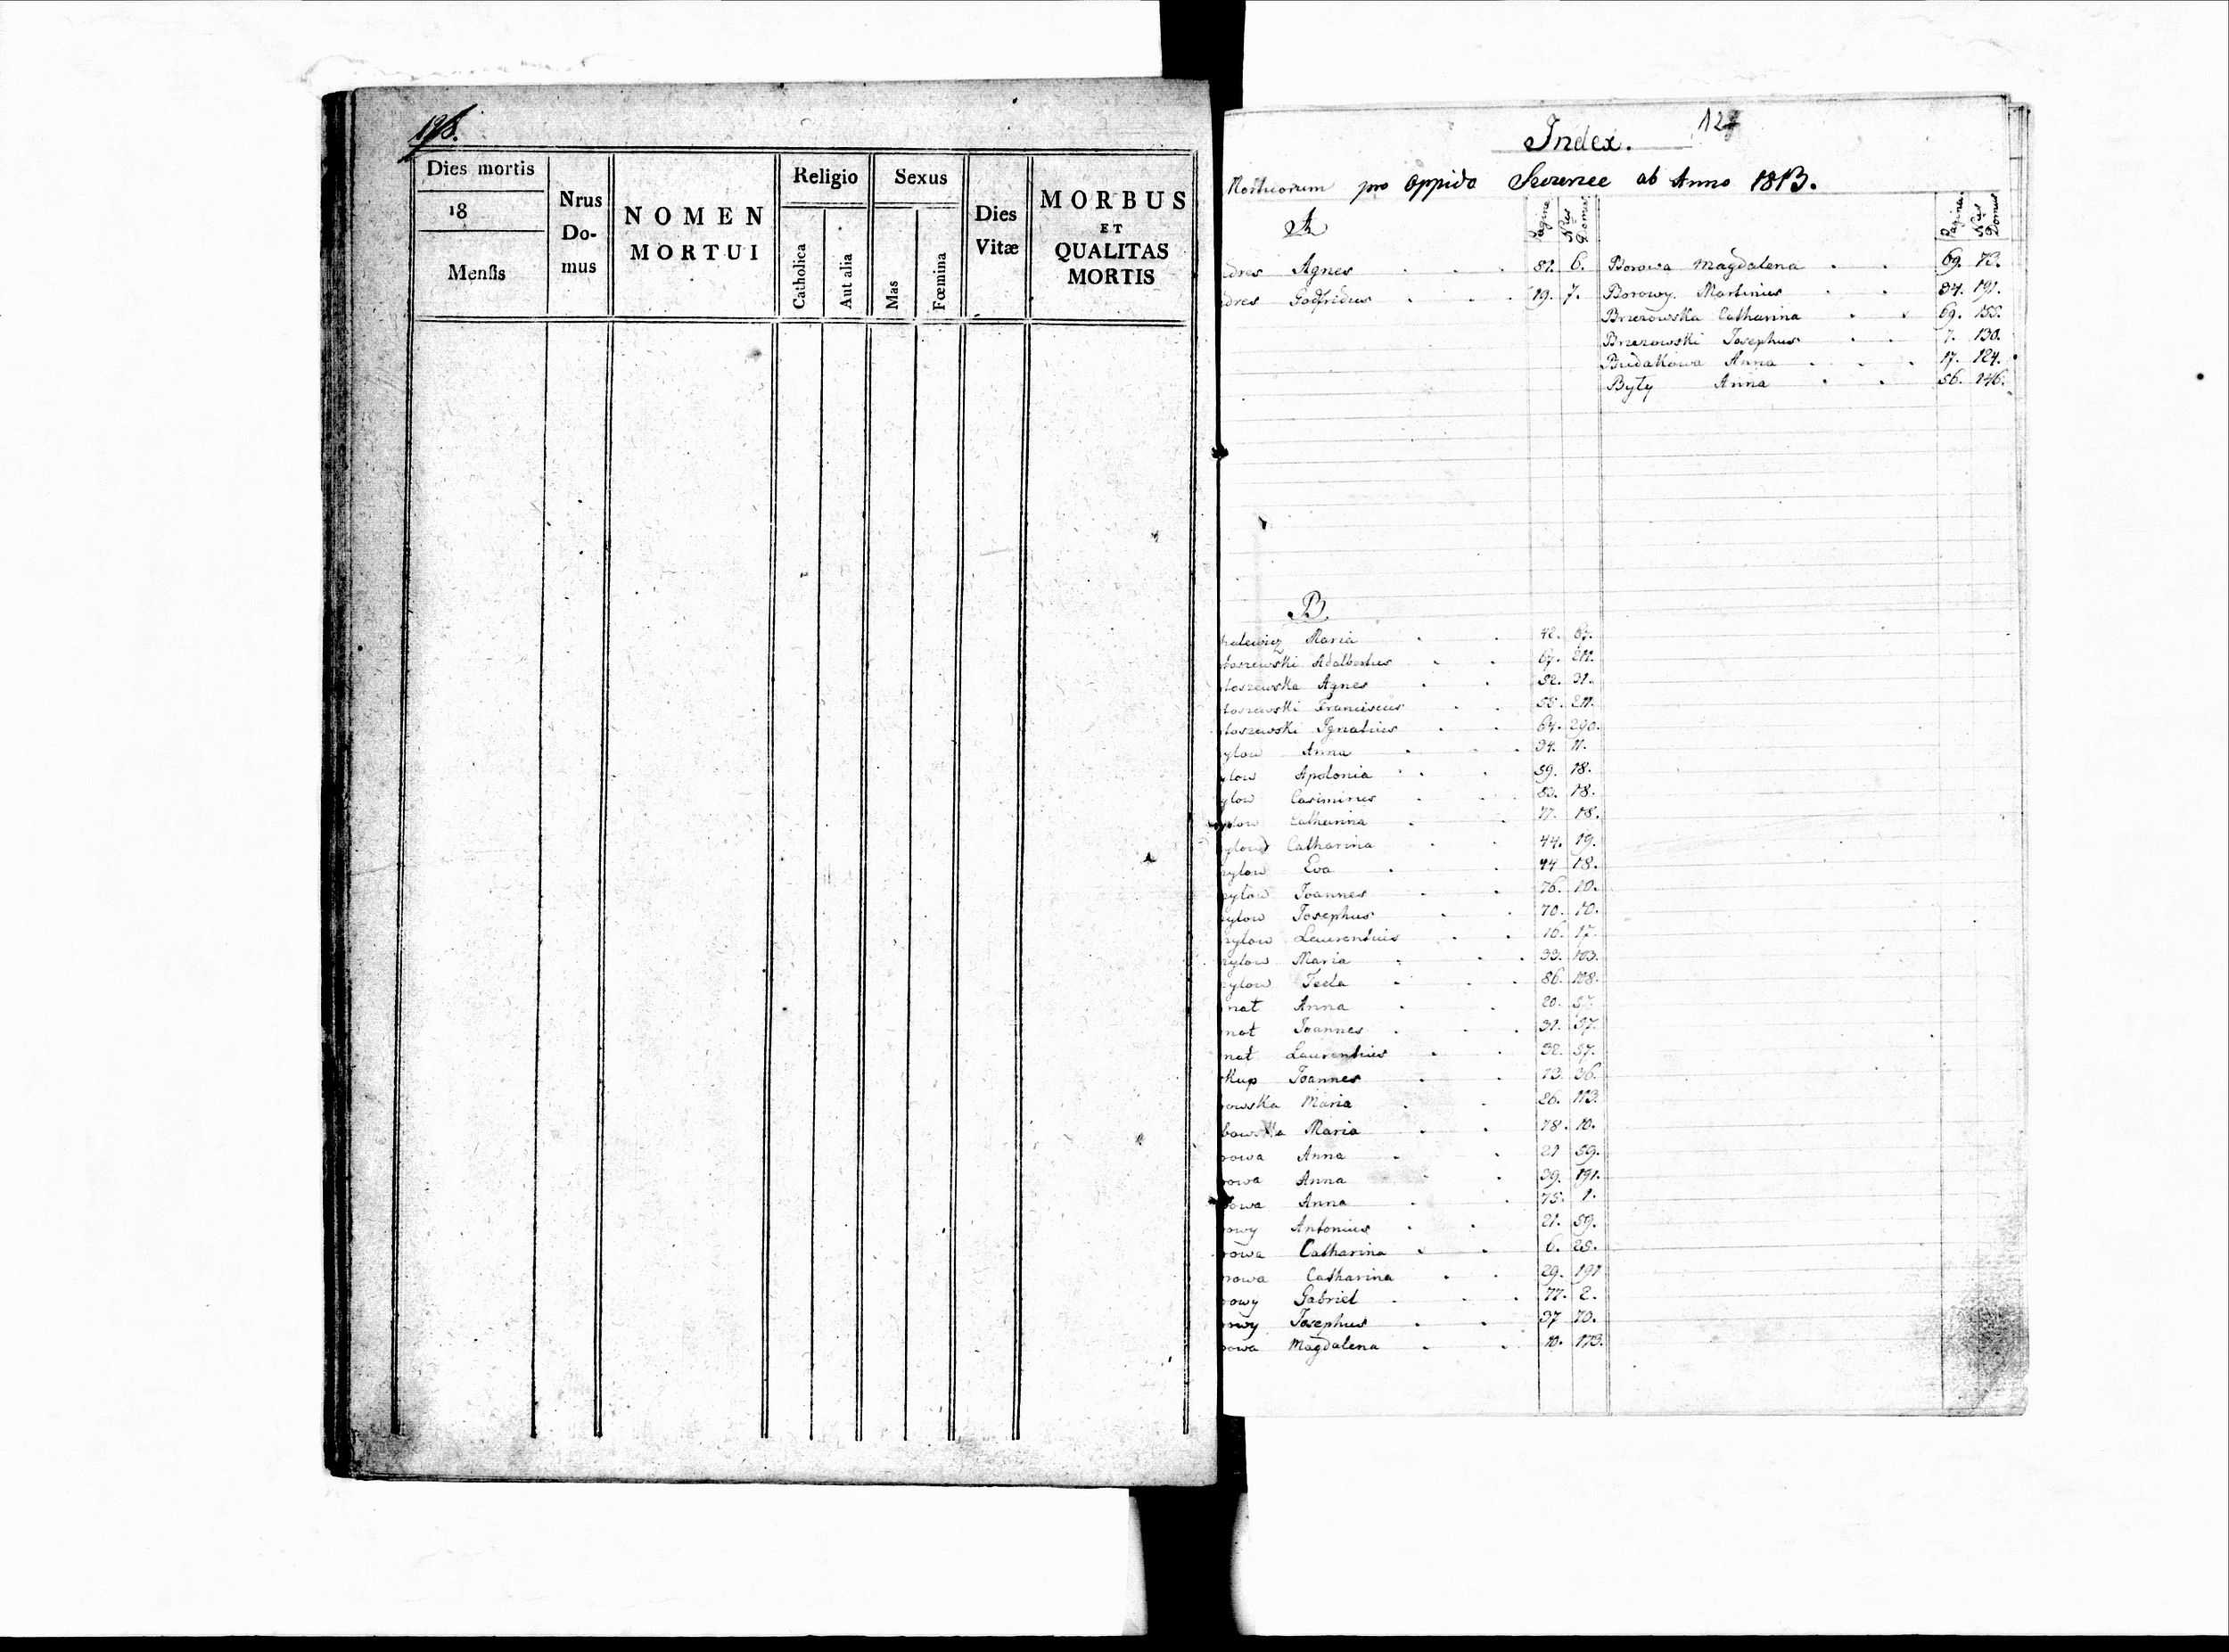 198.
Dies mortis
18
Mensis
Nrus Do-mus
NOMEN MORTUI
Religio
Catholica
Aut alia
Sexus
Mas
Fœmina
Dies Vitæ
MORBUS ET QUALITAS MORTIS
127
Index.
Mortuorum pro oppido ab Anno 1813.
A
Pagina Nrus Domus
Pagina Nrus Domus
dres Agnes 81. 6.
dres Godfridus 19. 7.
Borowa Magdalena 69. 73.
Borowy Martinus 34. 191.
Brzezowska Catharina 69. 155.
Brzezowski Josephus 7. 130.
Budakowa Anna 17. 124.
Byty Anna 56. 146.
B
halewicz Maria 42. 67.
toszewski Adalbertus 67. 211.
toszewska Agnes 52. 31.
toszewski Franciscus 55. 211.
toszewski Ignatius 64. 290.
ylow Anna 34. 11.
ylow Apolonia 59. 18.
ylow Casimirus 83. 18.
ylow Catharina 77. 18.
ylow Catharina 44. 19.
ylow Eva 44 18.
ylow Joannes 76. 10.
ylow Josephus 70. 10.
rylow Laurentius 16. 17.
rylow Maria 33. 103.
rylow Tecla 86. 108.
nat Anna 20. 57.
nat Joannes 31. 37.
nat Laurentius 32. 57.
kup Joannes 73. 36.
owska Maria 26. 113.
bowska Maria 78. 10.
rowa Anna 21 59.
owa Anna 39. 191.
rowa Anna 75. 1.
owy Antonius 21. 59.
rowa Catharina 6. 25.
rowa Catharina 29. 191
rowy Gabriel 77. 2.
rowy Josephus 37 70.
owa Magdalena 10. 173.